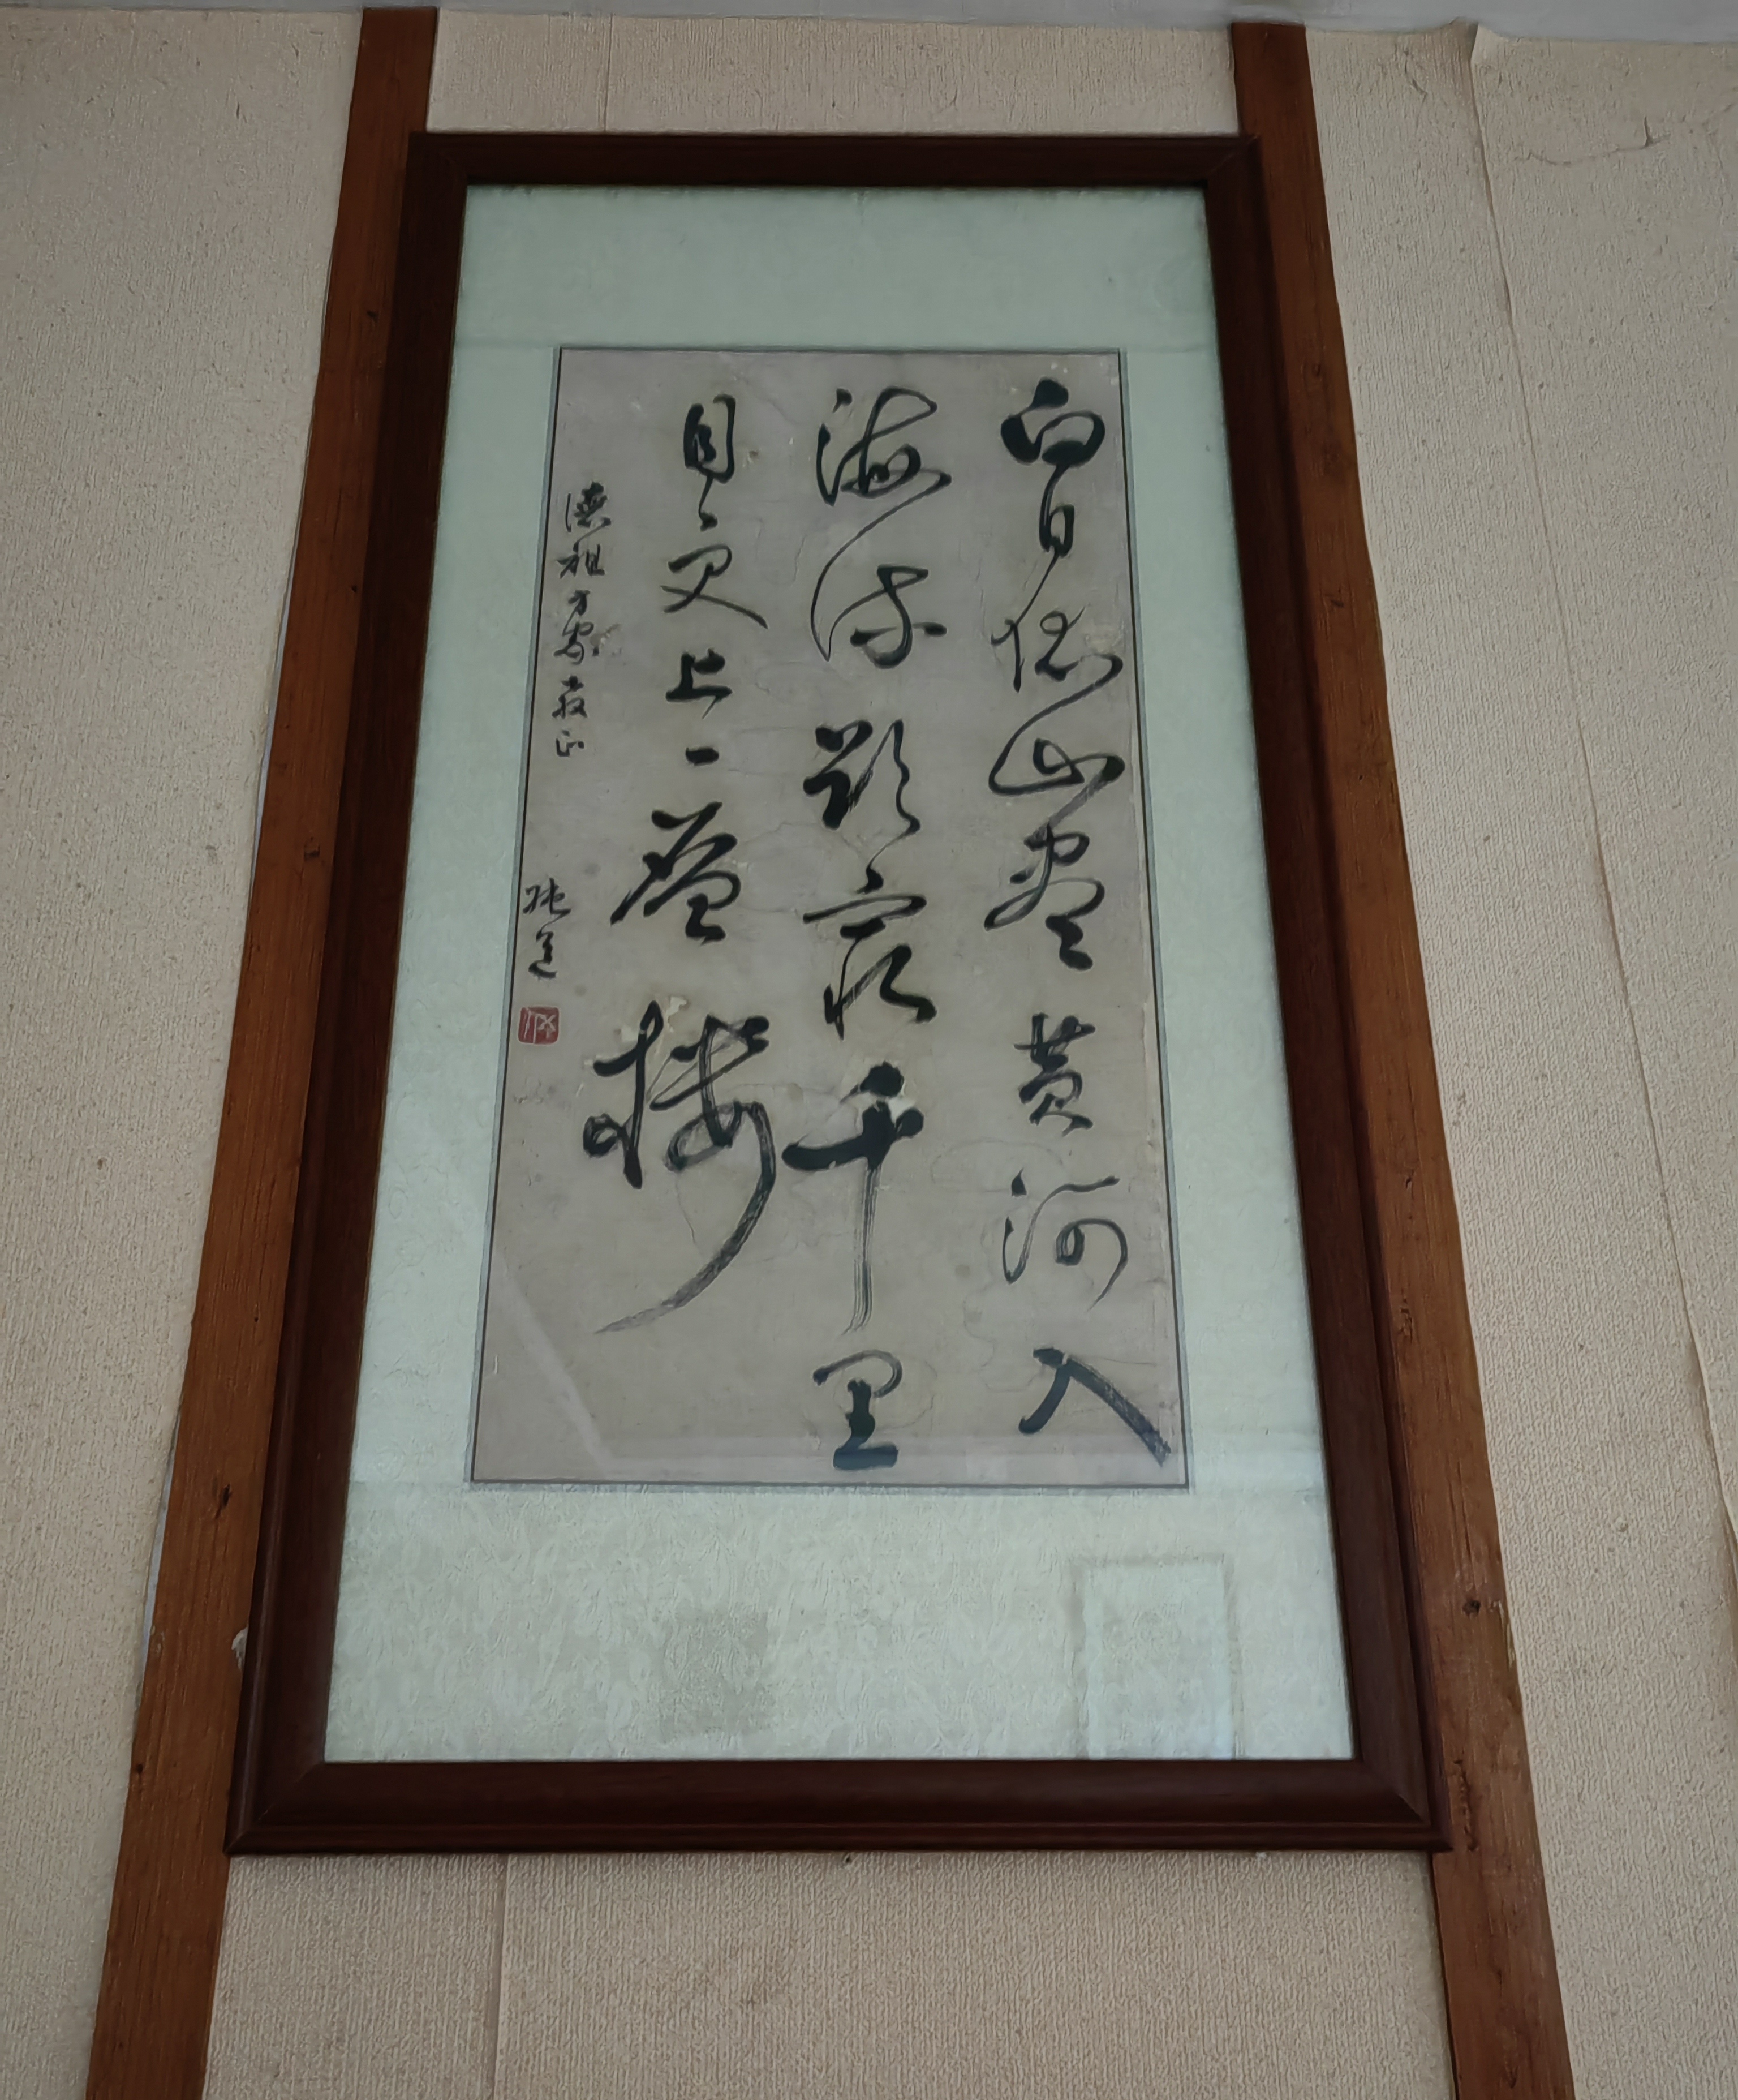 白日依山盡黄河入
海流欲窮千里
目更上一層樓
德祖方家教正